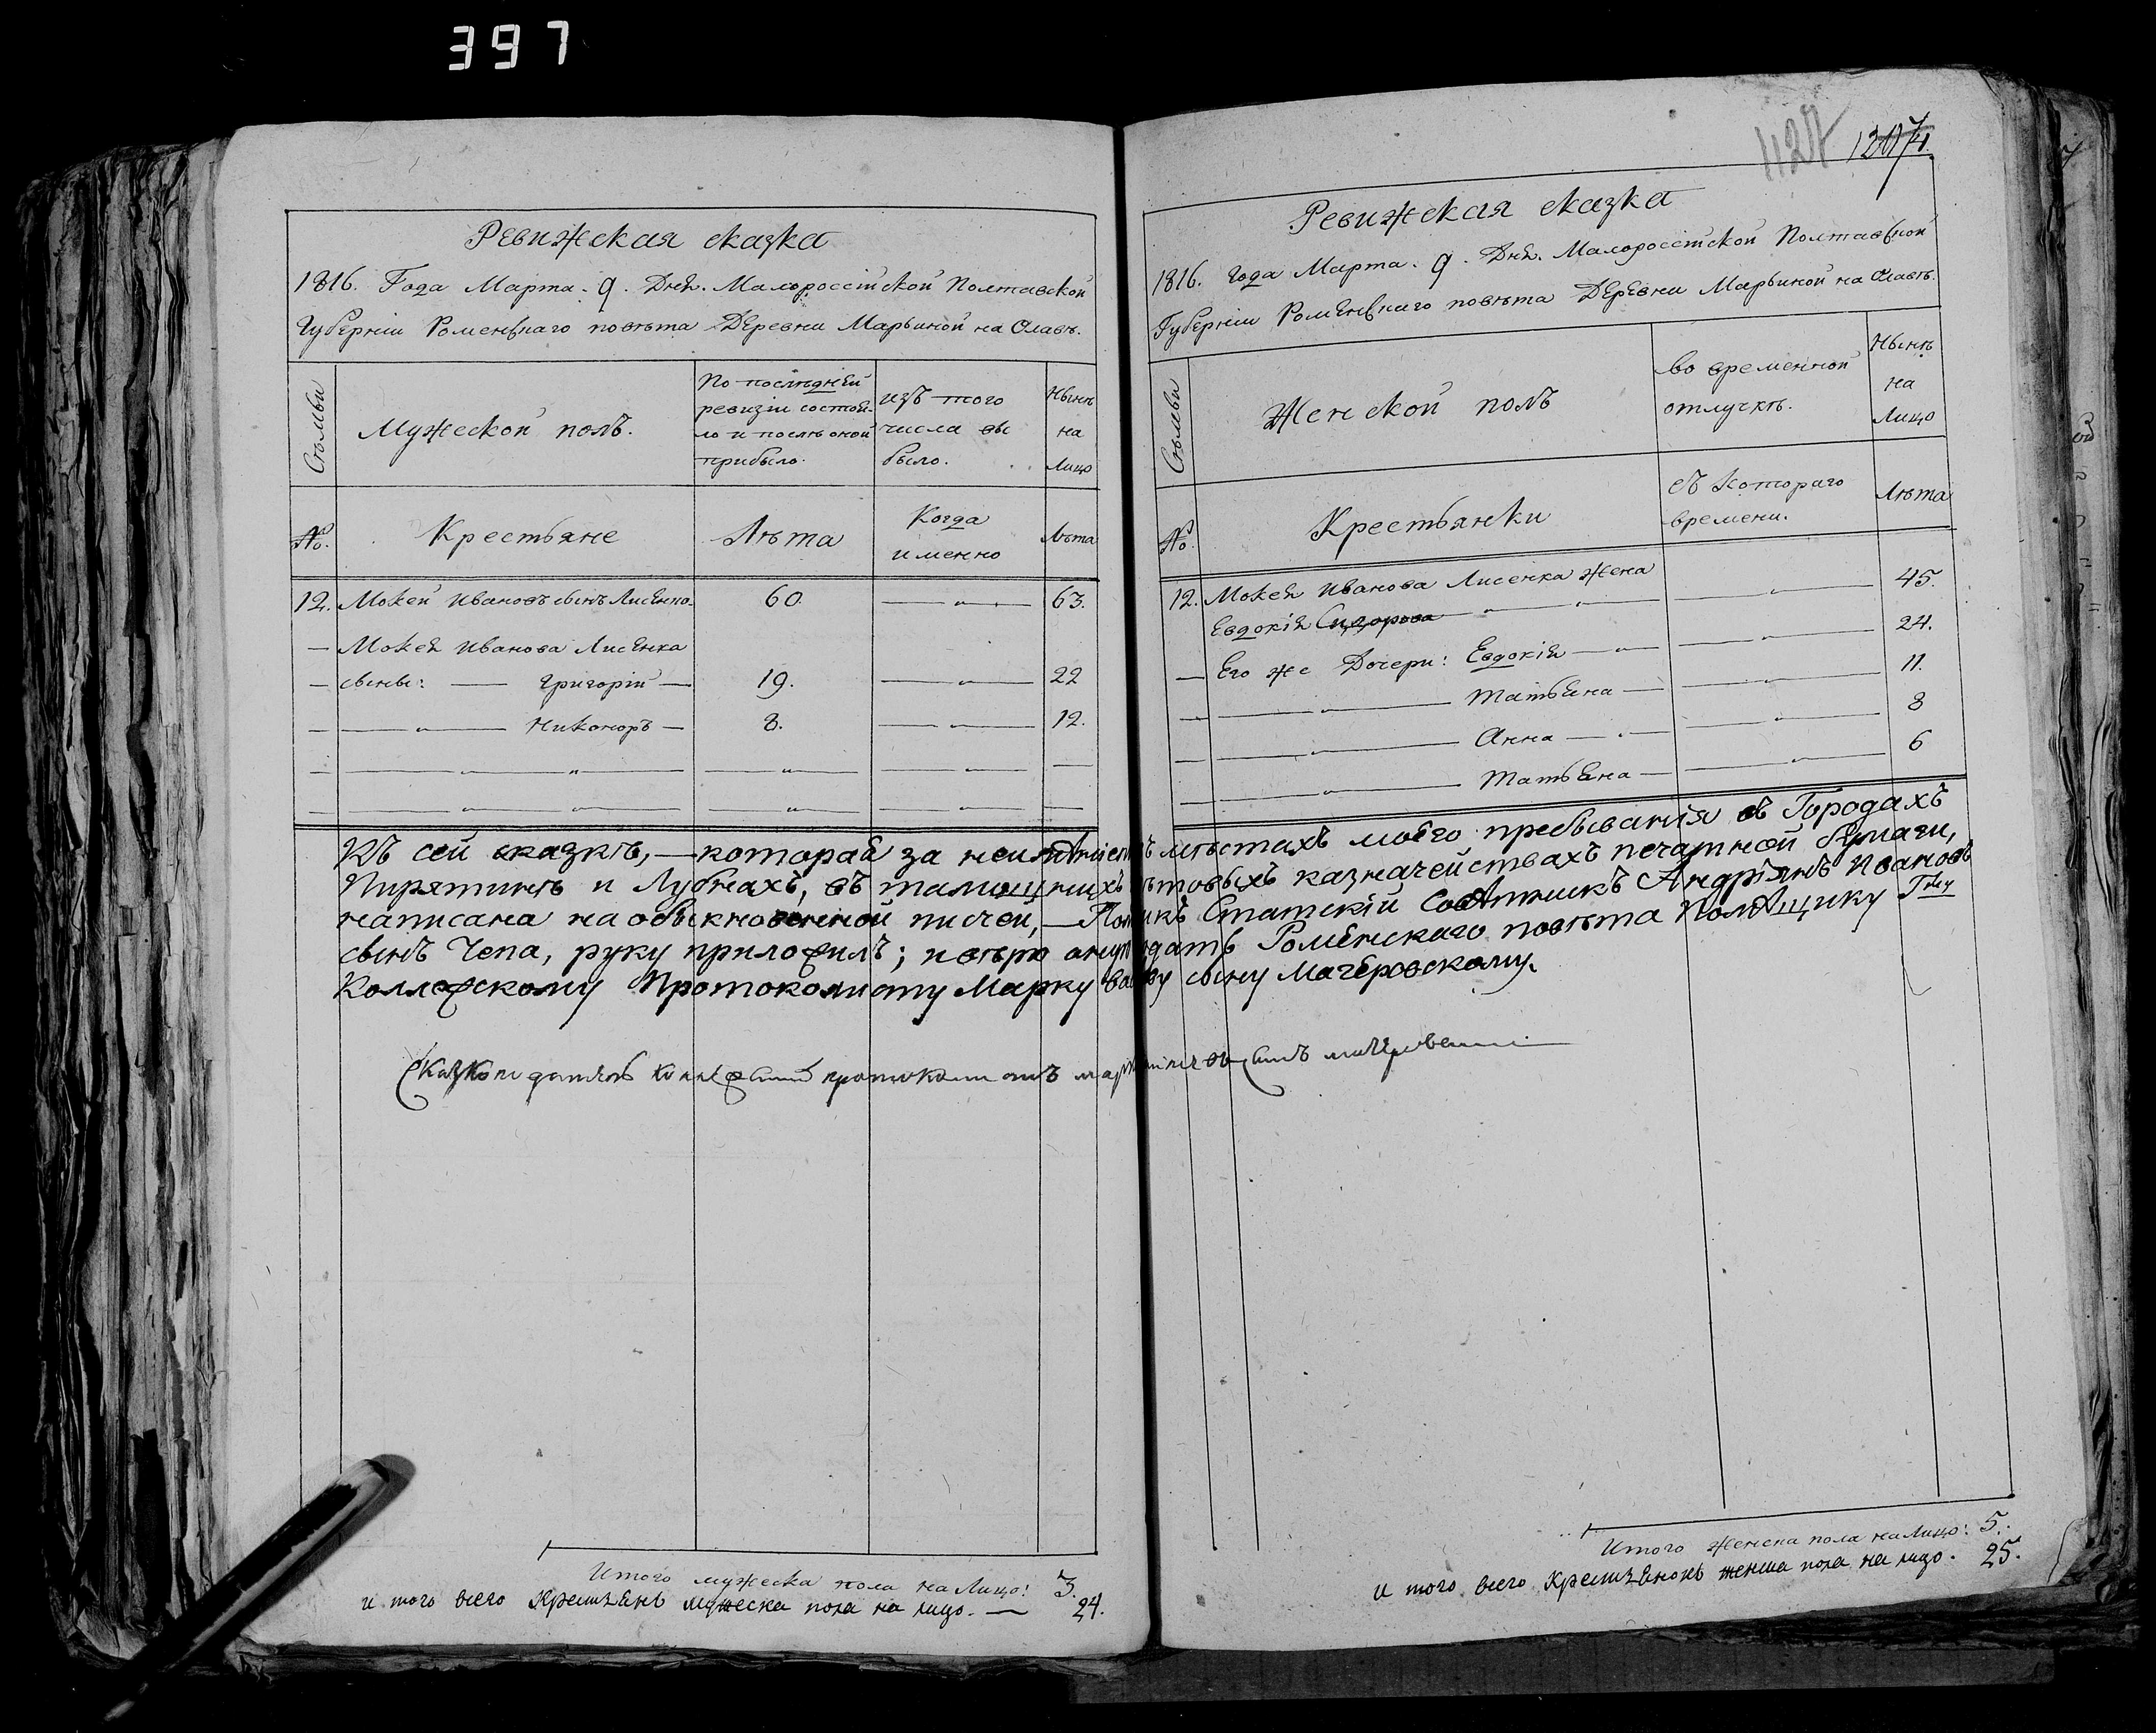 397
427
Ревижская сказка
1816. Года Марта. 9. Дня. Малороссійской Полтавской
Губерніи Роменскаго повѣта Деревни Марьиной на Олавѣ.
Сѣмьи
Мужеской полъ.
По послѣдней
ревизіи состоя-
ло и послѣ оной
прибыло.
изъ того
числа вы
было.
Нынѣ
на
Лицо
№.
Крестьяне
Лѣта
Когда
именно
Лѣта
12. Мокей Ивановъ сынъ Лисенко. 60. — „ — 63.
— Мокея Иванова Лисенка
— сыны: — Григорій — 19. — „ — 22
— — „ — Никоноръ — 8. — „ — 12.
Ревижская сказка
1816. Года Марта. 9. Дня. Малоросійской Полтавской
Губерніи Роменскаго повѣта Деревни Марьиной на Олавѣ.
Сѣмьи
Женской полъ
Во временной
отлучкѣ.
Нынѣ
на
Лицо
№.
Крестьянки
съ Котораго
времени.
Лѣта
12. Мокея Иванова Лисенка жена
Евдокія Сидорова — „ — „ — 45.
— Его же Дочери: Евдокія — „ — 24.
— — „ — Татьяна — „ — 11.
— — „ — Анна — „ — 8
— — „ — Татьяна — „ — 6
Къ сей сказкѣ, — которая за неимѣніемъ въ мѣстахъ моего пребыванія въ Городахъ
Пирятинѣ и Лубнахъ, въ тамошнихъ повѣтовыхъ казначействахъ печатной бумаги,
написана на обыкновенной писчей, — Статскій Совѣтникъ Андріянъ Ивановъ
сынъ Чепа, руку приложилъ; и вѣрю оную подать Роменскаго повѣта Помѣщику Гну
Коллежскому Протоколисту Марку сыну Мачеровскому.
Сказко податель коллежскій протоколистъ
Итого мужеска пола на Лицо: 3.
и того всего Крестьянъ мужеска пола на лицо. — 24.
Итого женска пола на Лицо: 5.
и того всего Крестьянокъ женска пола на лицо. 25.